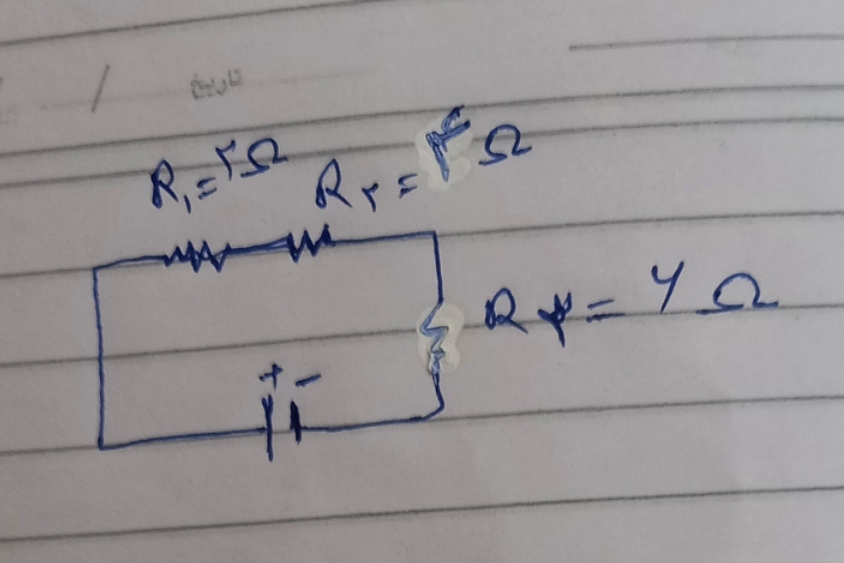 تاریخ / /
R۱ = ۲Ω R۲ = ۴ Ω
R۳ = ۶ Ω
+ −